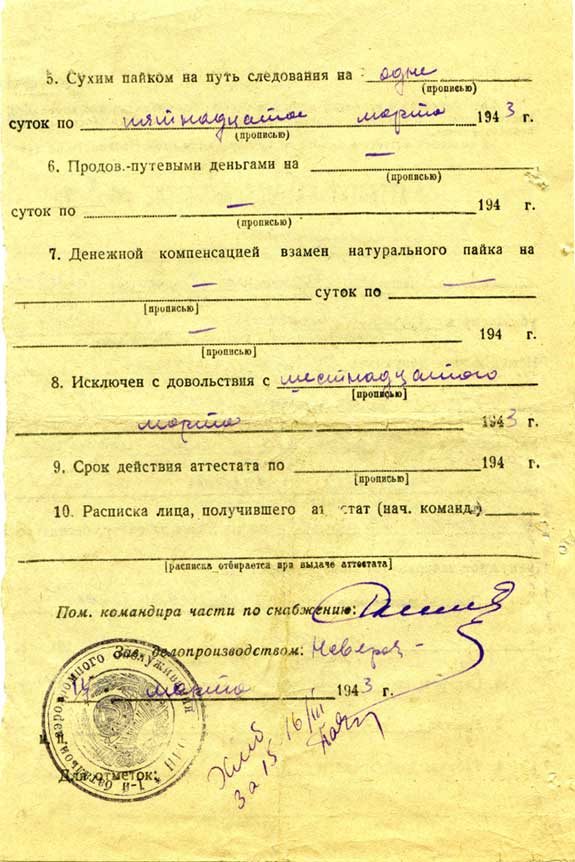 5. Сухим пайком на путь следования на одне
(прописью)
суток по пятнадцатое марта 1943 г.
(прописью)
6. Продов.-путевыми деньгами на —
(прописью)
суток по — 194 г.
(прописью)
7. Денежной компенсацией взамен натурального пайка на
— суток по —
[прописью]
— 194 г.
[прописью]
8. Исключен с довольствия с шестнадцатого
[прописью]
марта 1943 г.
9. Срок действия аттестата по 194 г.
[прописью]
10. Расписка лица, получившего ат стат (нач. команд.)
[расписка отбирается при выдаче аттестата]
Пом. командира части по снабжению:
Зав. делопроизводством: Неверов
14 марта 1943 г.
М. П.
Хлеб 16/III
за 15
Для отметок:
1-й батальон аэродромного обслуживания